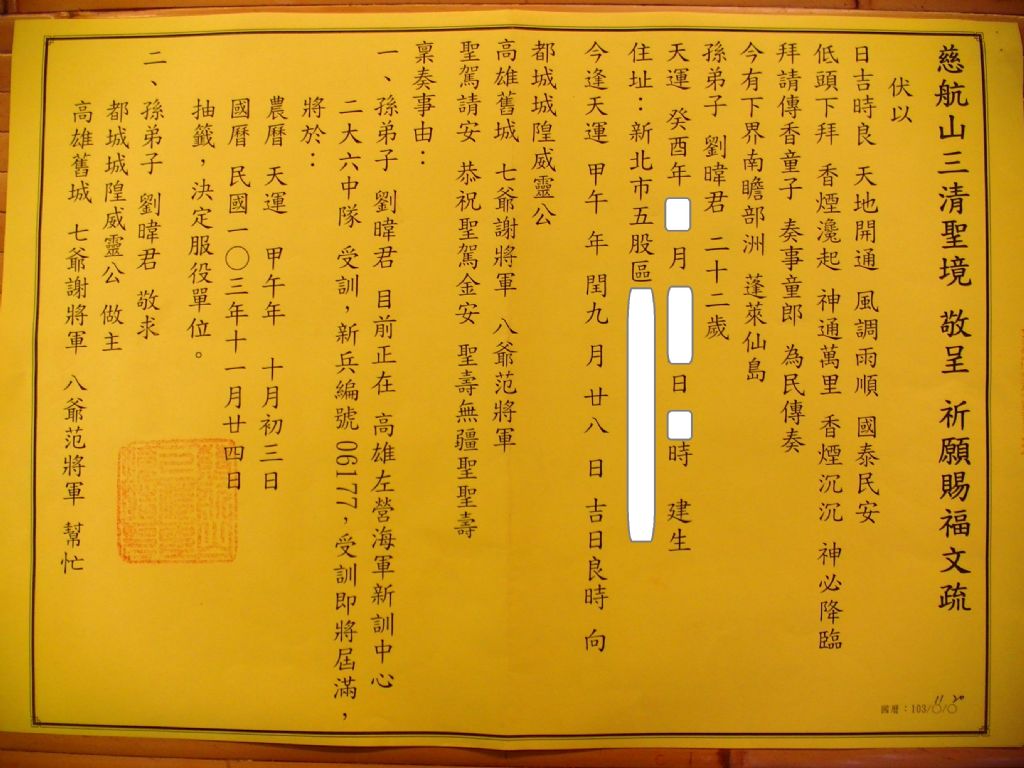 慈航山三清聖境 敬呈 祈願賜福文疏
伏以
日吉時良 天地開通 風調雨順 國泰民安
低頭下拜 香煙瀺起 神通萬里 香煙沉沉 神必降臨
拜請傳香童子 奏事童郎 為民傳奏
今有下界南瞻部洲 蓬萊仙島
孫弟子 劉暐君 二十二歲
天運 癸酉年 月 日 時 建生
住址：新北市五股區
今逢天運 甲午 年 閏九 月 廿八 日 吉日良時 向
都城城隍威靈公
高雄舊城 七爺謝將軍 八爺范將軍
聖駕請安 恭祝聖駕金安 聖壽無疆聖聖壽
稟奏事由：
一、孫弟子 劉暐君 目前正在 高雄左營海軍新訓中心
二大六中隊 受訓，新兵編號 06177，受訓即將屆滿，
將於：
農曆 天運 甲午年 十月初三日
國曆 民國一〇三年十一月廿四日
抽籤，決定服役單位。
二、孫弟子 劉暐君 敬求
都城城隍威靈公 做主
高雄舊城 七爺謝將軍 八爺范將軍 幫忙
國曆：103/11/20